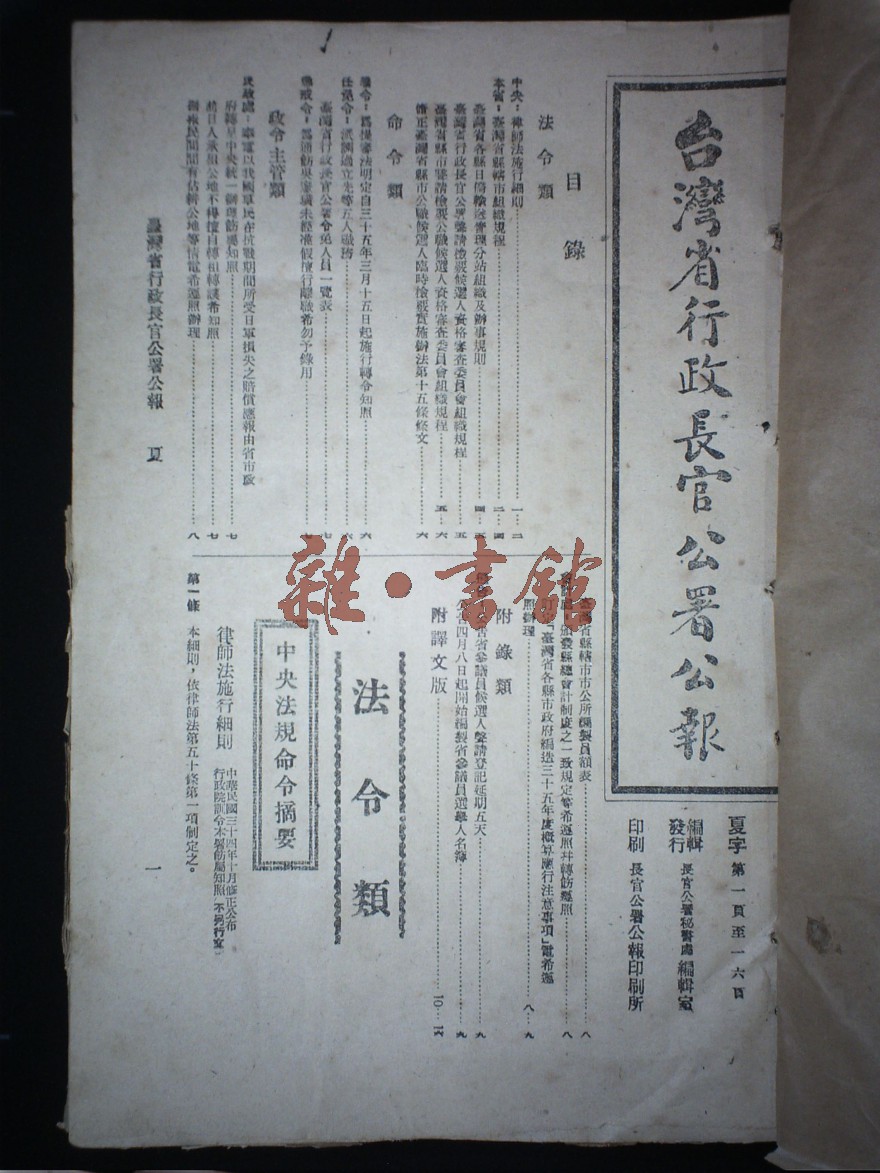 台灣省行政長官公署公報
夏字 第一頁至一六頁
編輯
發行 長官公署秘書處 編輯室
印刷 長官公署公報印刷所
目錄
法令類
中央:律師法施行細則……一—二
本省:臺灣省縣轄市組織規程……二—四
臺灣省各縣日僑輸送管理分站組織及辦事規則……四—五
臺灣省行政長官公署聲請檢覈候選人資格審查委員會組織規程……五
臺灣省縣市聲請檢覈公職候選人資格審查委員會組織規程……五—六
修正臺灣省縣市公職候選人臨時檢覈實施辦法第十五條條文……六
命令類
法明定自三十五年三月十五日起施行轉令知照……六
任免令:派 立先等五人職務……六
臺灣省行政長官公署令免人員一覽表……
懲戒令:為 未經准假擅行離職希勿予錄用……七
政令主管類
民政處:奉電以我國軍民在抗戰期間所受日軍損失之賠償應報由省市政
府轉呈中央統一辦理飭屬知照……七
前日人承租公地不得擅自轉租轉讓希知照……七
民間間有佔耕公地等情電希遵照辦理……八
臺灣省縣轄市市公所編製員額表……八
縣總會計制度之一致規定等希遵照并轉飭遵照……八
「臺灣省各縣市政府編造三十五年度概算應行注意事項」電希遵
照辦理……八—九
附錄類
省參議員候選人聲請登記延期五天……九
公告四月八日起開始編製省參議員選舉人名簿……九
附譯文版……10—16
法令類
中央法規命令摘要
律師法施行細則 中華民國三十四年十月修正公布
行政院訓令本署飭屬知照(不另行文)
第一條 本細則,依律師法第五十條第一項制定之。
臺灣省行政長官公署公報 夏 一
雜·書館